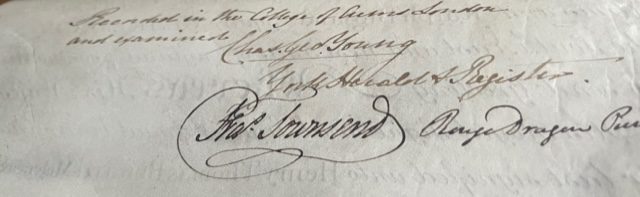 Recorded in the College of Arms London
and examined
Chas. Geo. Young
York Herald & Register.
Fras. Townsend Rouge Dragon Pur